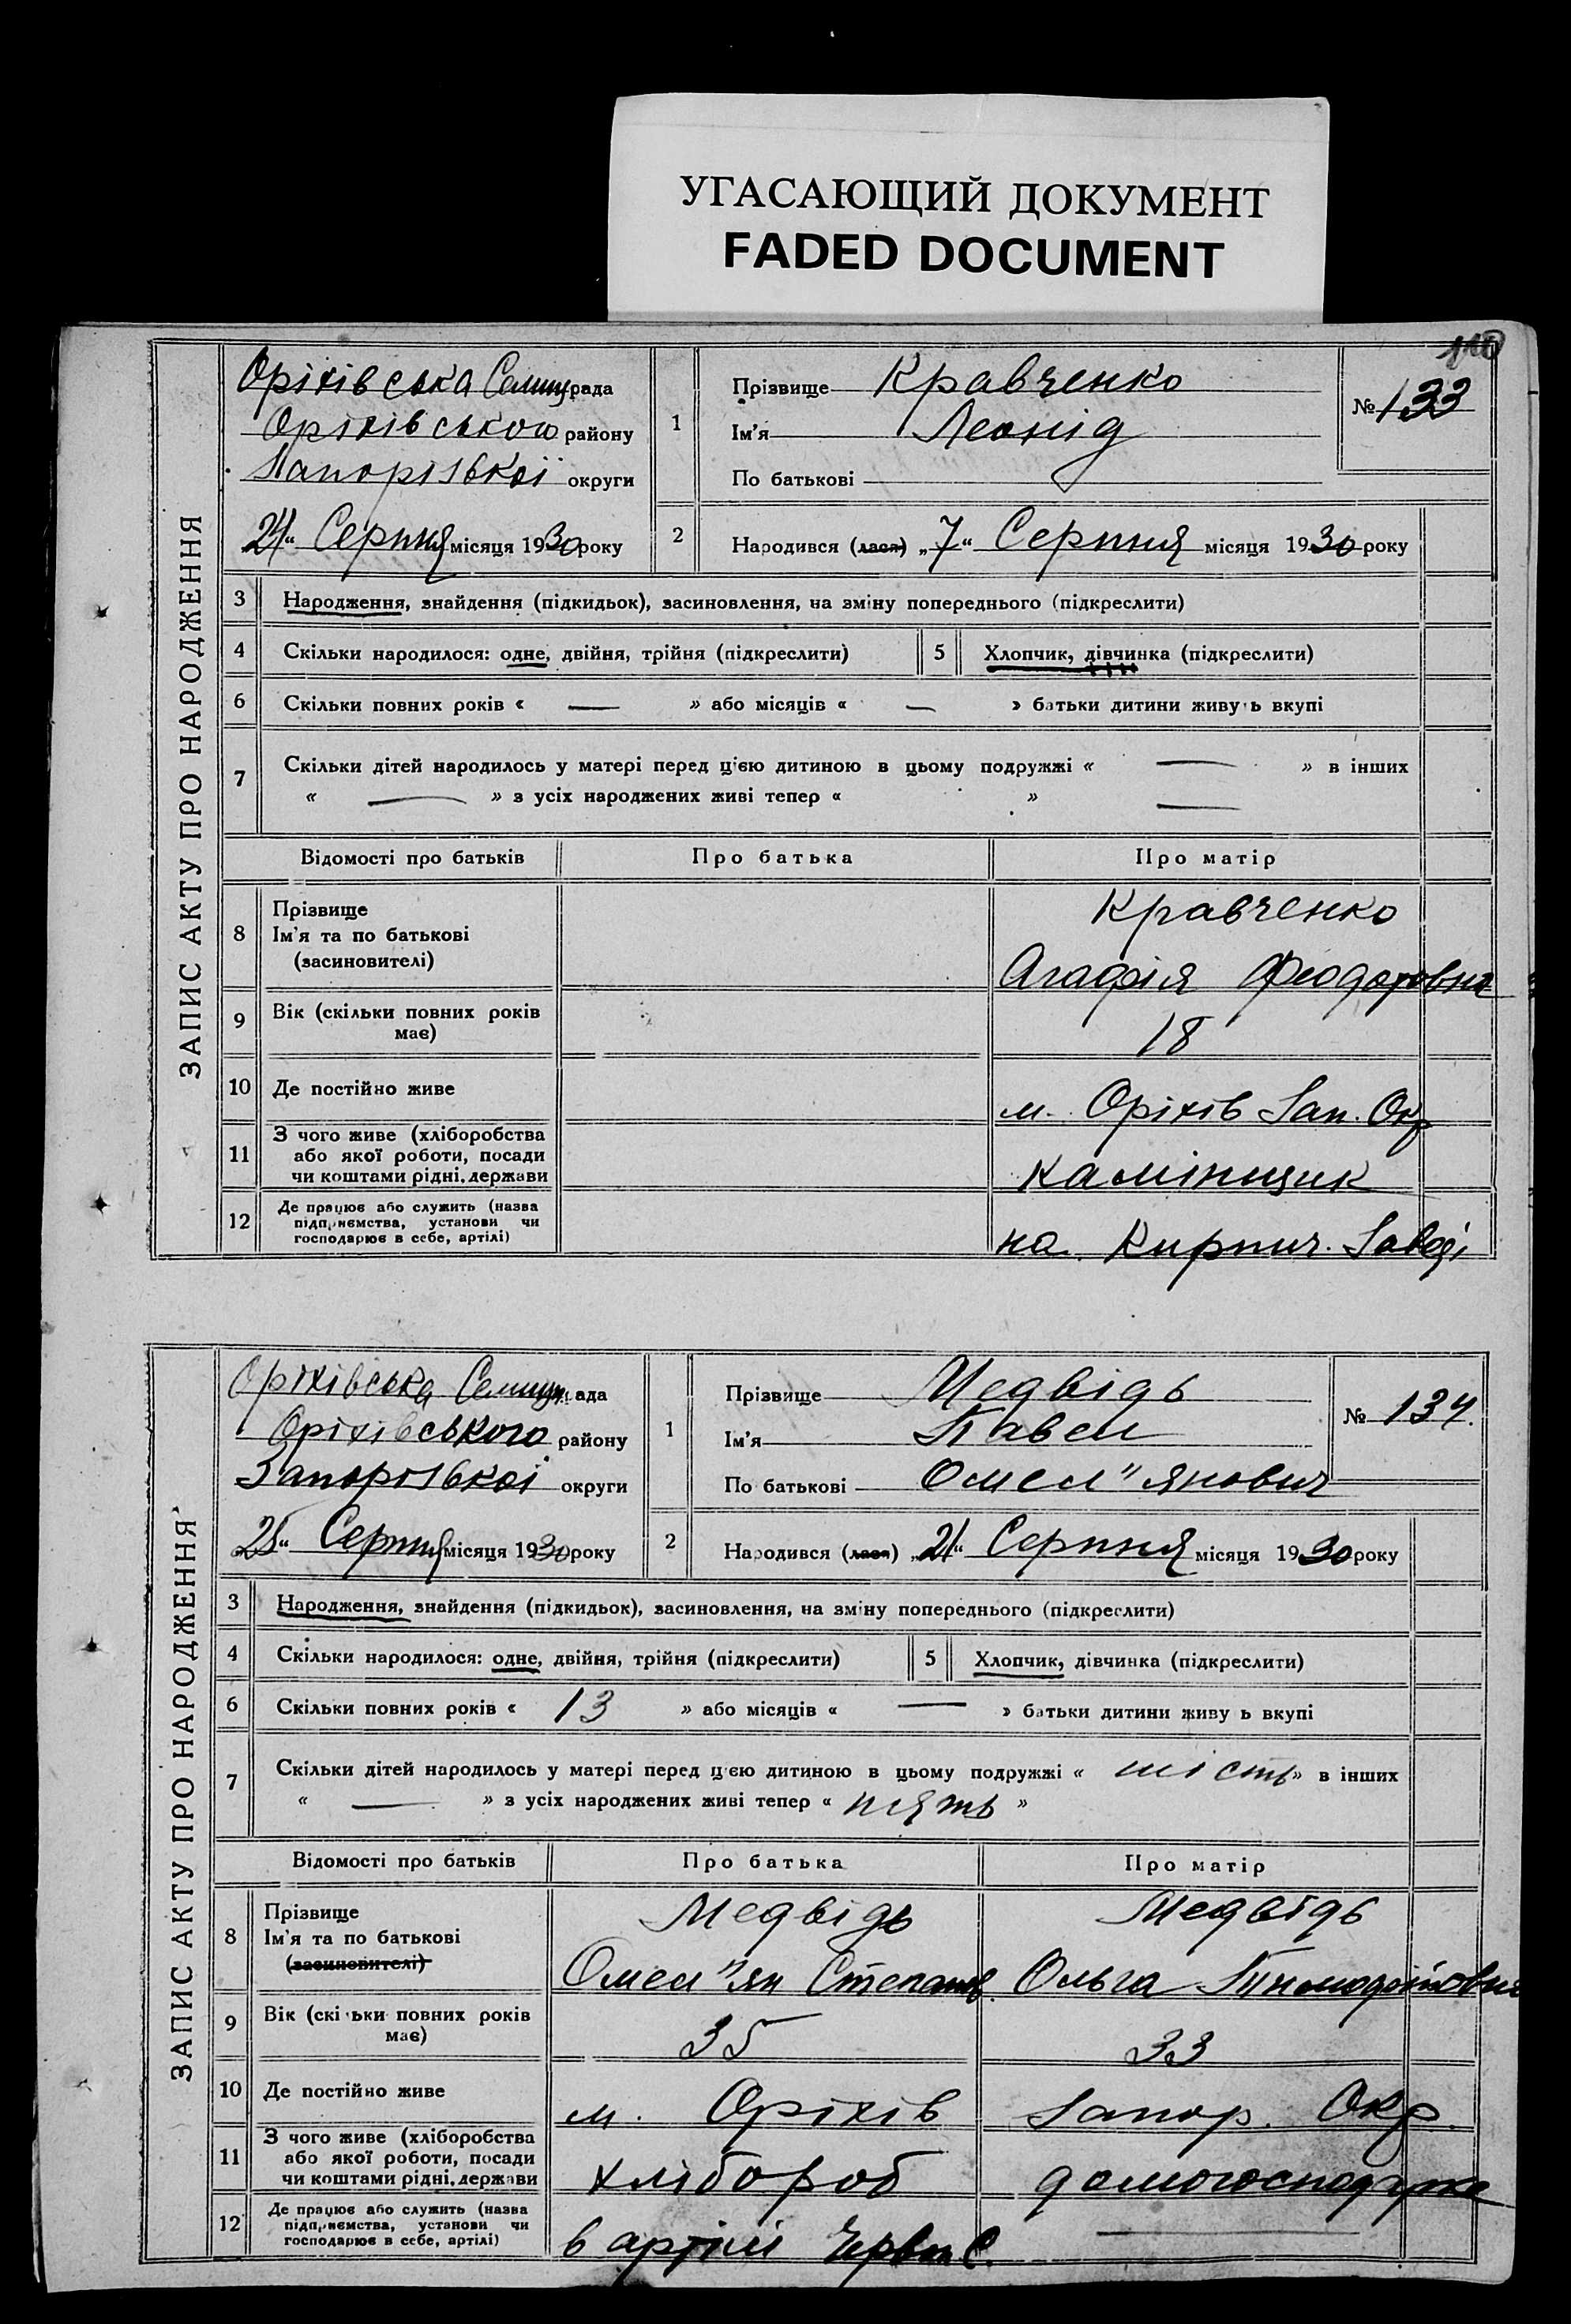 УГАСАЮЩИЙ ДОКУМЕНТ
FADED DOCUMENT
110
ЗАПИС АКТУ ПРО НАРОДЖЕННЯ
Оріхівська Селищ рада
Оріхівського району
Запорізької округи
„24“ Серпня місяця 1930 року
1
Прізвище Кравченко
Ім’я Леонід
По батькові
№ 133
2
Народився (лася) „7“ Серпня місяця 1930 року
3 Народження, знайдення (підкидьок), засиновлення, на зміну попереднього (підкреслити)
4 Скільки народилося: одне, двійня, трійня (підкреслити) 5 Хлопчик, дівчинка (підкреслити)
6 Скільки повних років « — » або місяців « — » батьки дитини живуть вкупі
7 Скільки дітей народилось у матері перед цією дитиною в цьому подружжі « — » в інших
« — » з усіх народжених живі тепер « » —
Відомості про батьків Про батька Про матір
8 Прізвище
Ім’я та по батькові
(засиновителі)
Кравченко
Агафія Феодоровна
9 Вік (скільки повних років
має)
18
10 Де постійно живе
м. Оріхів Зап. Окр
11 З чого живе (хліборобства
або якої роботи, посади
чи коштами рідні, держави
камінщик
12 Де працює або служить (назва
підприємства, установи чи
господарює в себе, артілі)
на Кирпич. Заводі
ЗАПИС АКТУ ПРО НАРОДЖЕННЯ
Оріхівська Селищ рада
Оріхівського району
Запорізької округи
„25“ Серпня місяця 1930 року
1
Прізвище Медвідь
Ім’я Павел
По батькові Омел"янович
№ 134.
2
Народився (лася) „21“ Серпня місяця 1930 року
3 Народження, знайдення (підкидьок), засиновлення, на зміну попереднього (підкреслити)
4 Скільки народилося: одне, двійня, трійня (підкреслити) 5 Хлопчик, дівчинка (підкреслити)
6 Скільки повних років « 13 » або місяців « — » батьки дитини живу ь вкупі
7 Скільки дітей народилось у матері перед цією дитиною в цьому подружжі « шість» в інших
« — » з усіх народжених живі тепер « пять »
Відомості про батьків Про батька Про матір
8 Прізвище
Ім’я та по батькові
(засиновителі)
Медвідь Медвідь
Омел"ян Степанов. Ольга Тимофіївна
9 Вік (скільки повних років
має)
35 33
10 Де постійно живе
м. Оріхів Запор. Окр.
11 З чого живе (хліборобства
або якої роботи, посади
чи коштами рідні, держави
хлібороб домогосподарка
12 Де працює або служить (назва
підприємства, установи чи
господарює в себе, артілі)
в артілі —